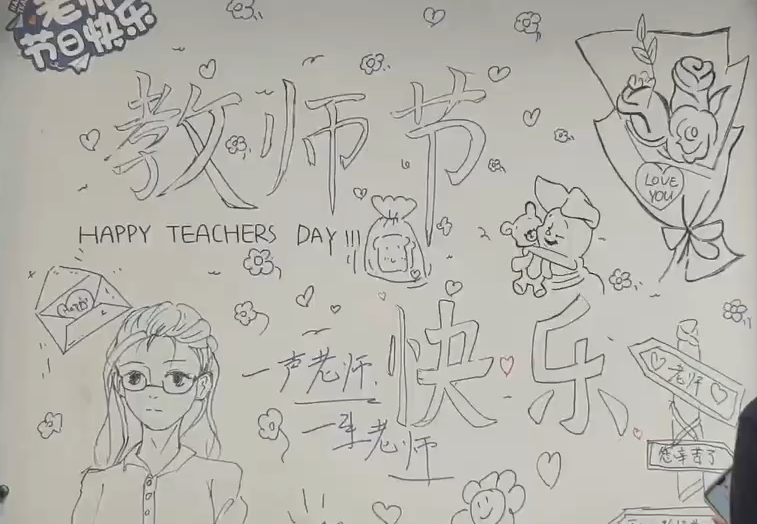 老师
节日快乐
教师节
HAPPY TEACHERS DAY!!!
LOVE
YOU
Happy
快乐
一声老师,
一生老师
老师
您辛苦了